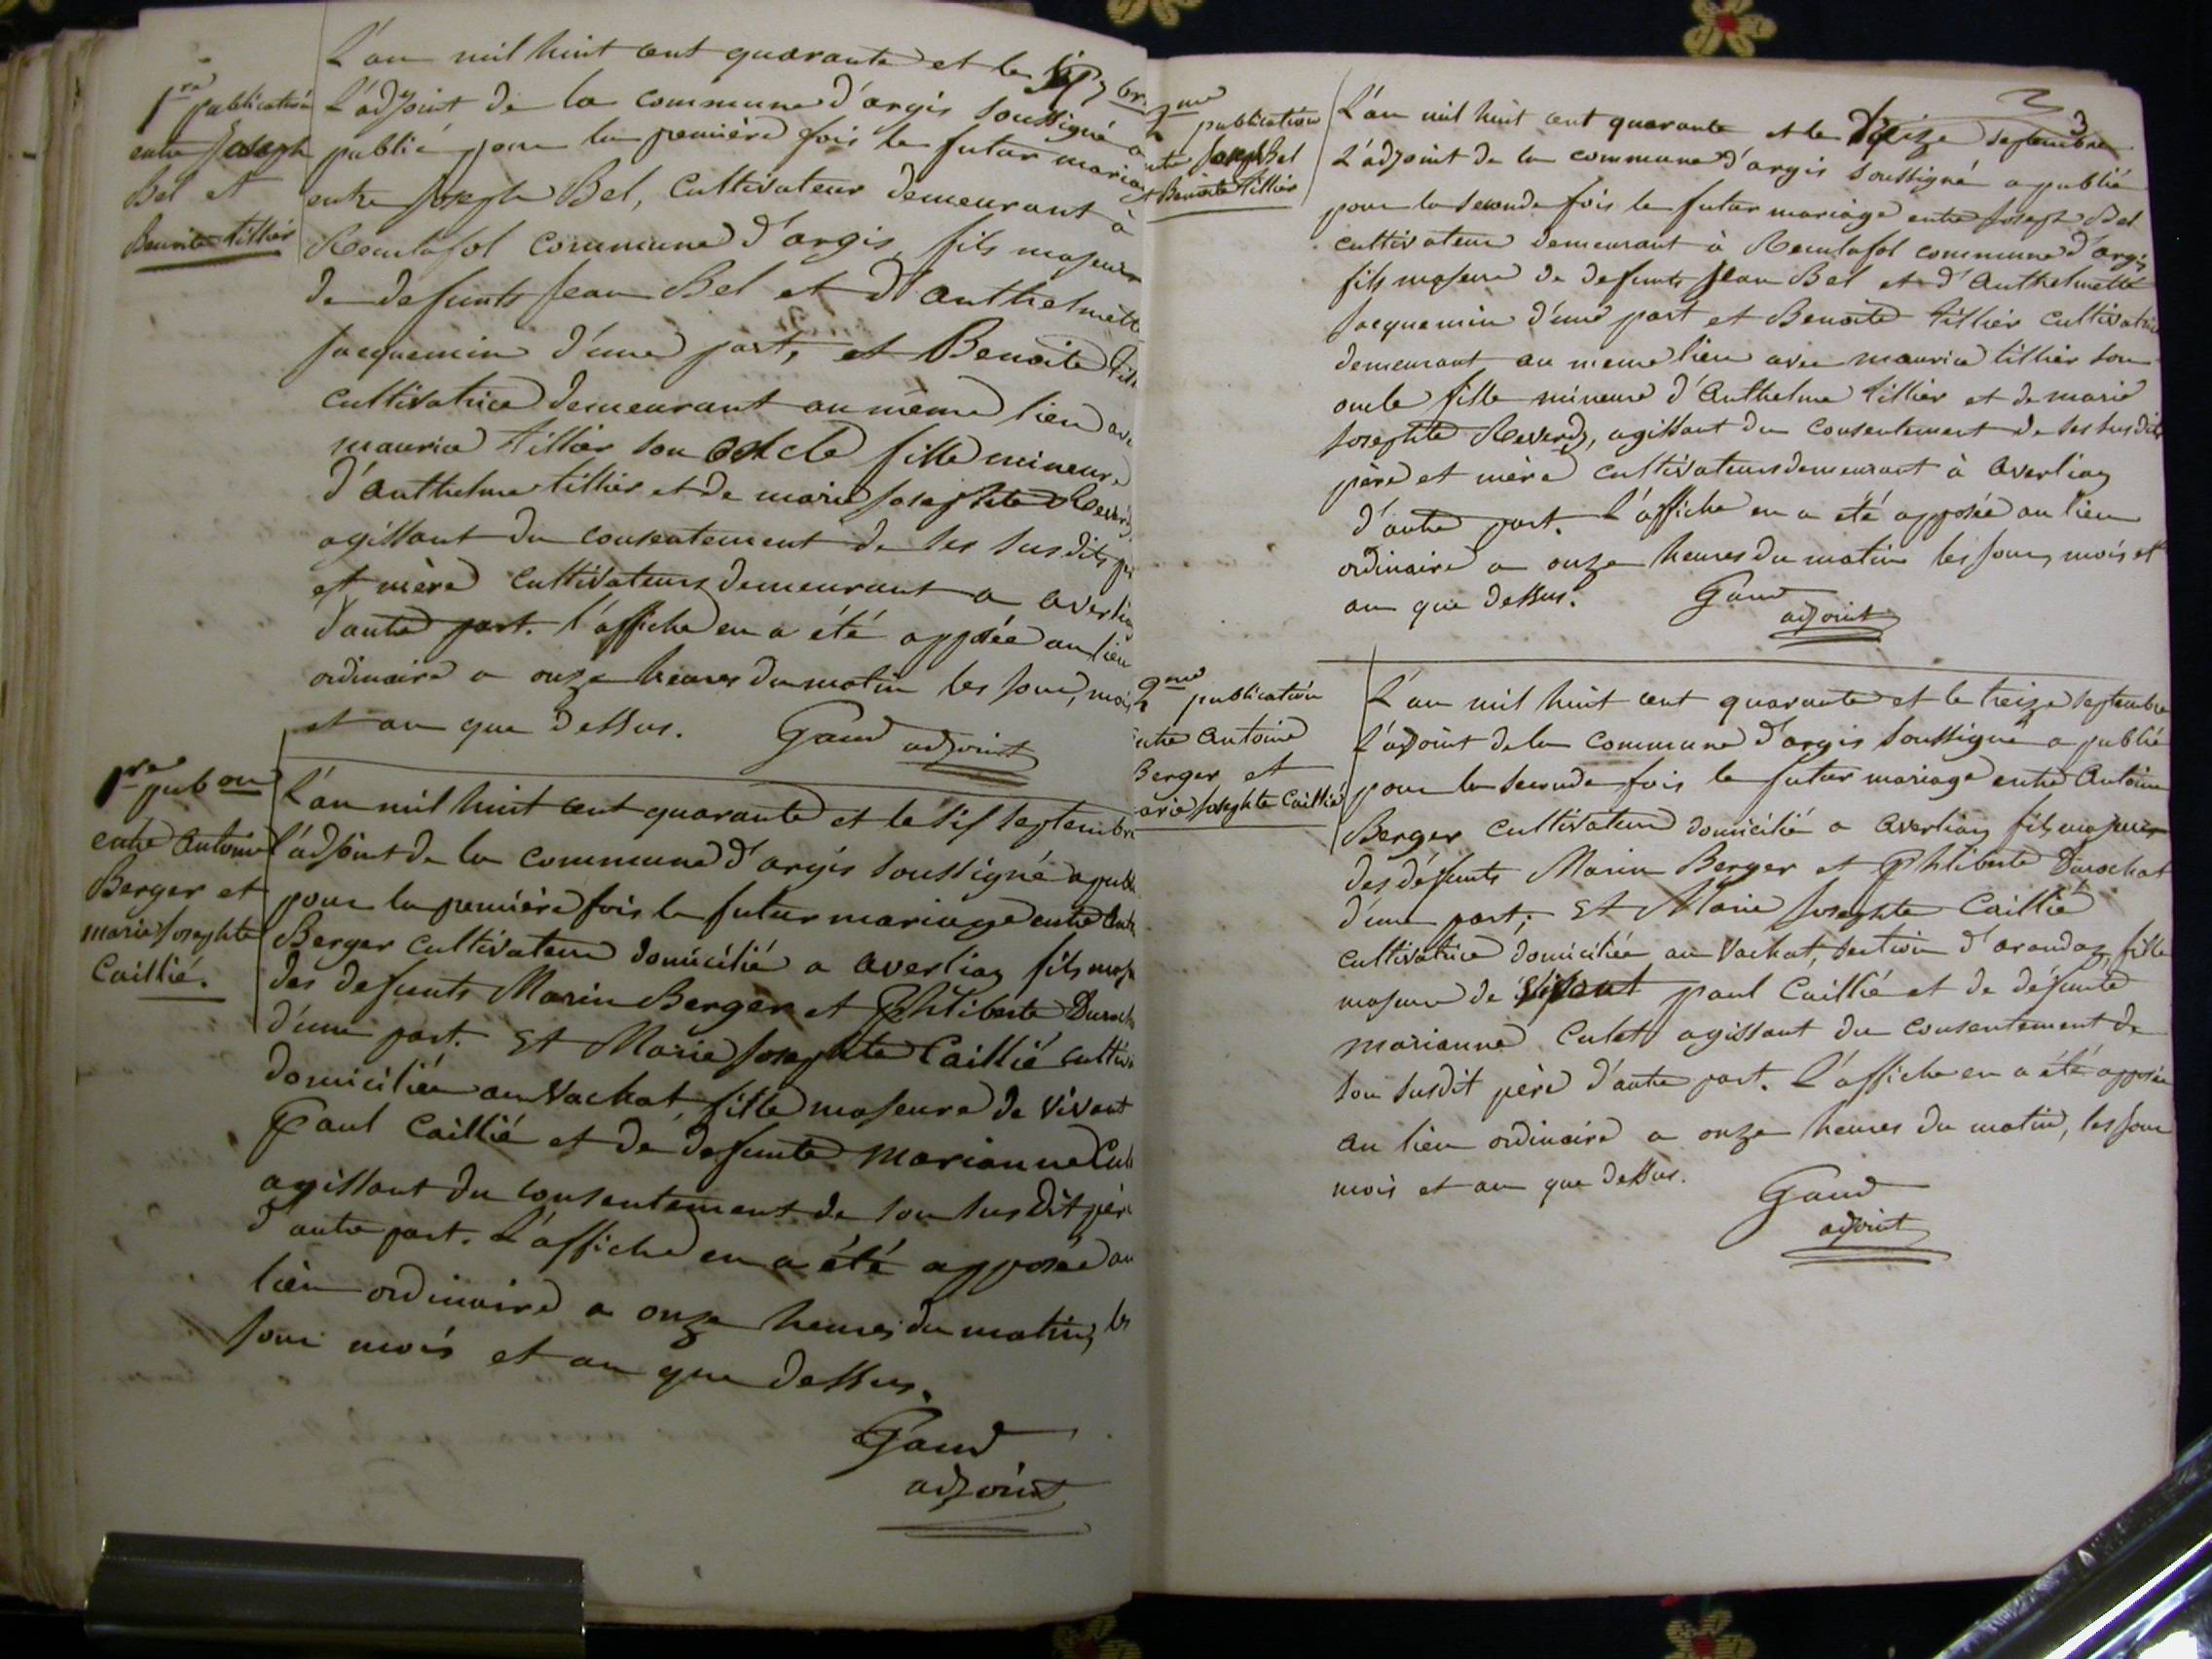 1re publication
entre Joseph
Bel et
Benoite tillier
L'an mil huit cent quarante et le six 7bre
L'adjoint de la commune d'argis soussigné a
publié pour la première fois le futur mariage
entre Joseph Bel, Cultivateur demeurant à
Reculafol commune d'argis, fils majeur
de defunts Jean Bel et d'Anthelmette
Jacquemin d'une part, et Benoite
cultivatrice demeurant au même lieu avec
maurice tillier son oncle fille mineure
d'Anthelme tillier et de marie Josephte
agissant du consentement de ses susdits
et mère Cultivateurs demeurant a
d'autre part. l'affiche en a été apposée au lieu
ordinaire a onze heures du matin les jour, mois
et an que dessus. Gaud adjoint
1re pubon
entre Antoine
Berger et
marie Josephte
Caillié.
L'an mil huit cent quarante et le six septembre
l'adjoint de la commune d'argis soussigné a
pour la première fois le futur mariage entre
Berger cultivateur domicilié a averliaz fils
des defunts Marin Berger et Philiberte
d'une part. Et Marie Josephte Caillié
domiciliée au Vachat, fille majeure de vivant
Paul Caillié et de defunte marianne
agissant du consentement de son susdit père
d'autre part. L'affiche en a été apposée au
lieu ordinaire a onze heures du matin, les
jour mois et an que dessus.
Gaud
adjoint
3
2me publication
Joseph Bel
et Benoite tillier
L'an mil huit cent quarante et le treize septembre
L'adjoint de la commune d'argis soussigné a publié
pour la seconde fois le futur mariage entre Joseph Bel
cultivateur demeurant à Reculafol commune d'argis
fils majeur de defunts Jean Bel et d'Anthelmette
Jacquemin d'une part et Benoite tillier cultivatrice
demeurant au meme lieu avec maurice tillier son
oncle fille mineure d'Anthelme tillier et de marie
Josephte Reverdy, agissant du consentement de ses susdits
père et mère cultivateurs demeurant à averliaz
d'autre part. L'affiche en a été apposée au lieu
ordinaire a onze heures du matin les jour, mois et
an que dessus. Gaud
adjoint
2me publication
entre Antoine
Berger et
Josephte Caillié
L'an mil huit cent quarante et le treize septembre
L'adjoint de la commune d'argis soussigné a publié
pour la seconde fois le futur mariage entre Antoine
Berger cultivateur domicilié a averliaz fils majeur
des défunts Marin Berger et Philiberte Durochat
d'une part; Et Marie Josephte Caillié
cultivatrice domiciliée au Vachat, section d'arandaz, fille
majeure de vivant paul Caillié et de défunte
marianne Culet agissant du consentement de
son susdit père d'autre part. L'affiche en a été apposée
au lieu ordinaire a onze heures du matin, les jour
mois et an que dessus. Gaud
adjoint